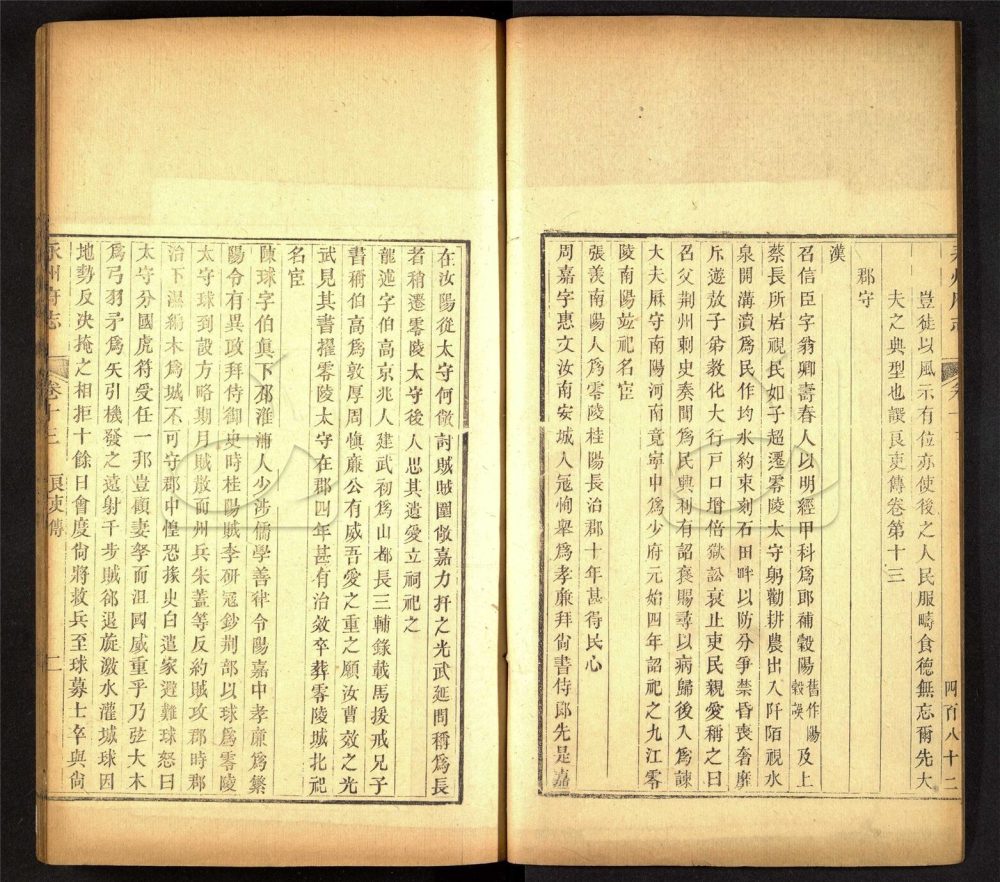 永州府志
四百八十二
豈徒以風示有位亦使後之人民服疇食德無忘爾先大
夫之典型也譔良吏傳卷第十三
郡守
漢
召信臣字翁卿壽春人以明經甲科爲郎補穀陽舊作陽穀誤及上
蔡長所居視民如子超遷零陵太守躬勸耕農出入阡陌視水
泉開溝瀆爲民作均水約束刻石田畔以防分爭禁昏喪奢靡
斥遊敖子弟敎化大行戸口增倍獄訟衰止吏民親愛稱之曰
召父荆州刺史奏聞爲民興利有詔褒賜尋以病歸後入爲諫
大夫厤守南陽河南竟寧中爲少府元始四年詔祀之九江零
陵南陽竝祀名宦
張羨南陽人爲零陵桂陽長治郡十年甚得民心
周嘉字惠文汝南安城人冦恂舉爲孝廉拜尙書侍郎先是嘉
在汝陽從太守何敞討賊賊圍敞嘉力扞之光武延問稱爲長
者稍遷零陵太守後人思其遺愛立祠祀之
龍述字伯高京兆人建武初爲山都長三輔錄載馬援戒兄子
書稱伯高爲敦厚周愼廉公有威吾愛之重之願汝曹效之光
武見其書擢零陵太守在郡四年甚有治效卒葬零陵城北祀
名宦
陳球字伯眞下邳淮浦人少涉儒學善律令陽嘉中孝廉爲繁
陽令有異政拜侍御史時桂陽賊李硏冦鈔荆部以球爲零陵
太守球到設方略期月賊散而州兵朱蓋等反約賊攻郡時郡
治下濕編木爲城不可守郡中惶恐掾史白遣家避難球怒曰
太守分國虎符受任一邦豈顧妻孥而沮國威重乎乃弦大木
爲弓羽矛爲矢引機發之遠射千步賊郤退旋激水灌城球因
地勢反决掩之相拒十餘日會度尙將救兵至球募士卒與尙
永州府志
卷十三
良吏傳
二